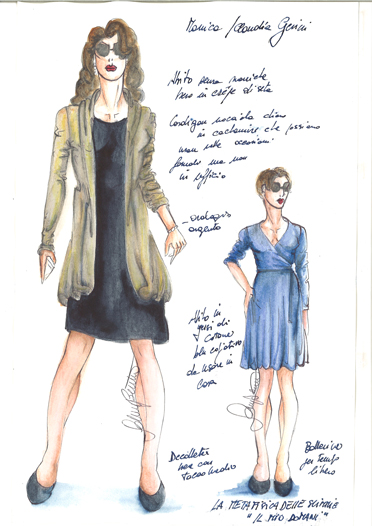 Monica / Claudia Gerini
Abito senza maniche
nero in crêpe di seta
Cardigan nocciola chiaro
in cachemire che possiamo
usare nelle occasioni
ma non
in ufficio
orologio
argento
Abito in
di
cotone
blu
da usare in
casa
Decolleter
nere con
tacco medio
Ballerine
per tempo
libero
LA METAFISICA DELLE SCIMMIE
"IL MIO DOMANI"